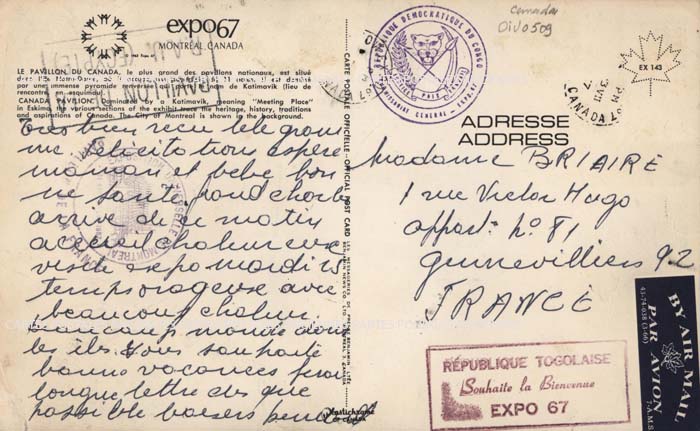 expo67
MONTRÉAL, CANADA
LE PAVILLON DU CANADA, le plus grand des pavillons nationaux, est situé
par une immense pyramide Katimavik (lieu de
rencontre, en esquimau).
CANADA PAVILION Dominated by a Katimavik, meaning "Meeting Place"
in Eskimo, the various sections of the exhibit trace the heritage, history, traditions
and aspirations of Canada. The City of Montreal is shown in the background.
Très bien reçu télégram
me félicitations espère
maman et bébé bon
ne santé
arrivé ce matin
accueil chaleureux
visite expo mardi
temps orageux avec
beaucoup chaleur
beaucoup monde dans
les îles. Vous souhaite
bonnes vacances ferai
longue lettre dès que
possible baisers
Plastichrome
CARTE POSTALE OFFICIELLE - OFFICIAL POST CARD
REPUBLIQUE DEMOCRATIQUE DU CONGO
COMMISSARIAT GENERAL - EXPO 67
Canada
OIV0509
EX 143
CANADA
ADRESSE
ADDRESS
Madame BRIAIRE
1 rue Victor Hugo
appart. no 81
Gennevilliers 92
FRANCE
RÉPUBLIQUE TOGOLAISE
Souhaite la Bienvenue
EXPO 67
BY AIR MAIL
PAR AVION
43-74-038 (3-66)